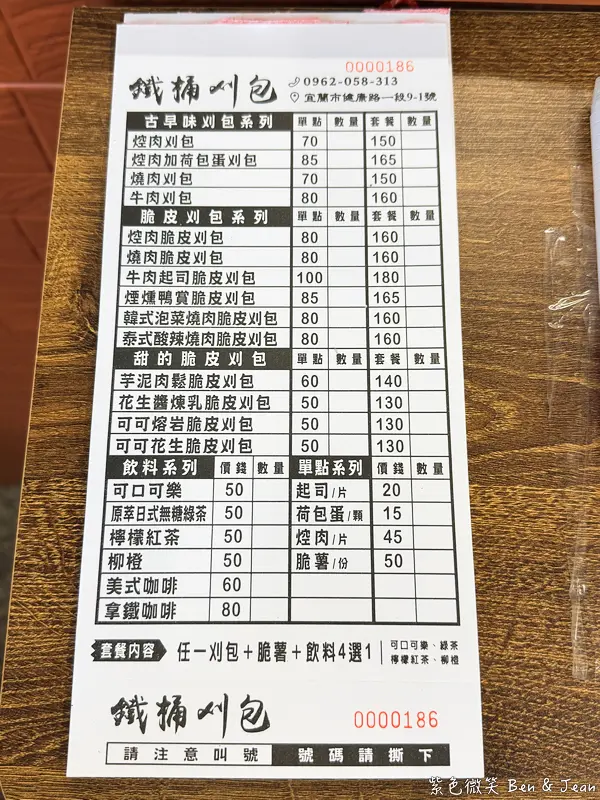 0000186
鐵桶刈包
0962-058-313
宜蘭市健康路一段9-1號
古早味刈包系列 單點 數量 套餐 數量
焢肉刈包 70 150
焢肉加荷包蛋刈包 85 165
燒肉刈包 70 150
牛肉刈包 80 160
脆皮刈包系列 單點 數量 套餐 數量
焢肉脆皮刈包 80 160
燒肉脆皮刈包 80 160
牛肉起司脆皮刈包 100 180
煙燻鴨賞脆皮刈包 85 165
韓式泡菜燒肉脆皮刈包 80 160
泰式酸辣燒肉脆皮刈包 80 160
甜的脆皮刈包 單點 數量 套餐 數量
芋泥肉鬆脆皮刈包 60 140
花生醬煉乳脆皮刈包 50 130
可可熔岩脆皮刈包 50 130
可可花生脆皮刈包 50 130
飲料系列 價錢 數量 單點系列 價錢 數量
可口可樂 50 起司/片 20
原萃日式無糖綠茶 50 荷包蛋/顆 15
檸檬紅茶 50 焢肉/片 45
柳橙 50 脆薯/份 50
美式咖啡 60
拿鐵咖啡 80
套餐內容 任一刈包+脆薯+飲料4選1
可口可樂、綠茶
檸檬紅茶、柳橙
鐵桶刈包 0000186
請注意叫號 號碼請撕下
紫色微笑 Ben & Jean